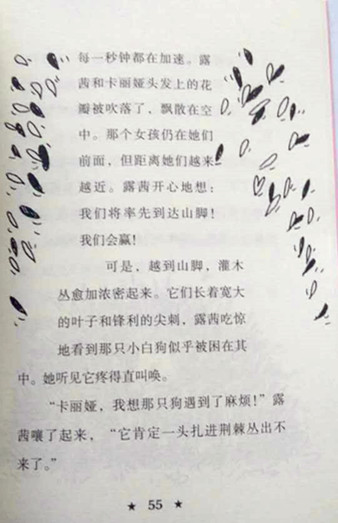 每一秒钟都在加速。露
茜和卡丽娅头发上的花
瓣被吹落了，飘散在空
中。那个女孩仍在她们
前面，但距离她们越来
越近。露茜开心地想：
我们将率先到达山脚！
我们会赢！
可是，越到山脚，灌木
丛愈加浓密起来。它们长着宽大
的叶子和锋利的尖刺，露茜吃惊
地看到那只小白狗似乎被困在其
中。她听见它疼得直叫唤。
“卡丽娅，我想那只狗遇到了麻烦！”露
茜嚷了起来，“它肯定一头扎进荆棘丛出不
来了。”
★ 55 ★